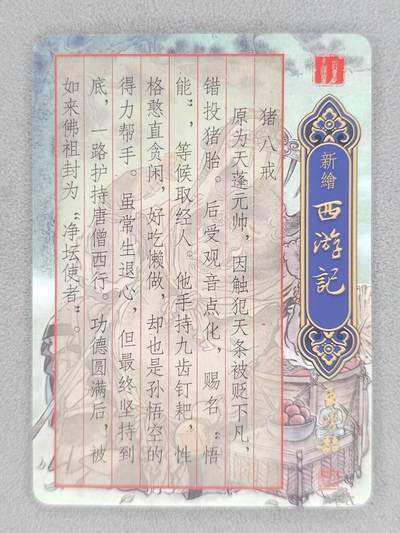 新繪
西游記
猪八戒
原为天蓬元帅，因触犯天条被贬下凡，
错投猪胎。后受观音点化，赐名“悟
能”，等候取经人。他手持九齿钉耙，性
格憨直贪闲，好吃懒做，却也是孙悟空的
得力帮手。虽常生退心，但最终坚持到
底，一路护持唐僧西行。功德圆满后，被
如来佛祖封为“净坛使者”。